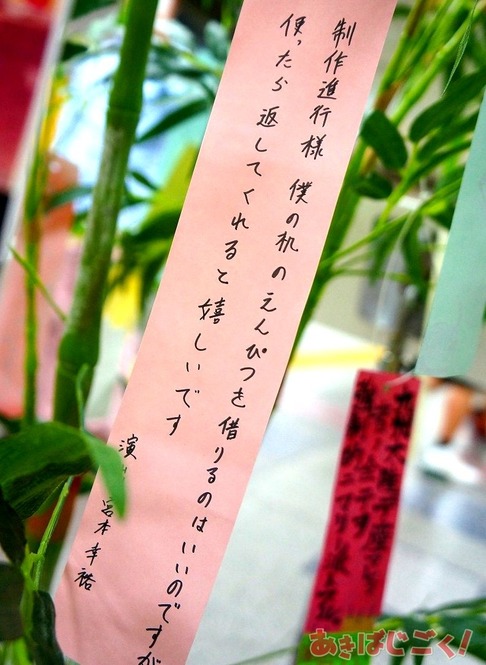 制作進行様 僕の机のえんぴつを借りるのはいいのですが
使ったら 返してくれると嬉しいです
演 宮本幸裕
あきばじごく!